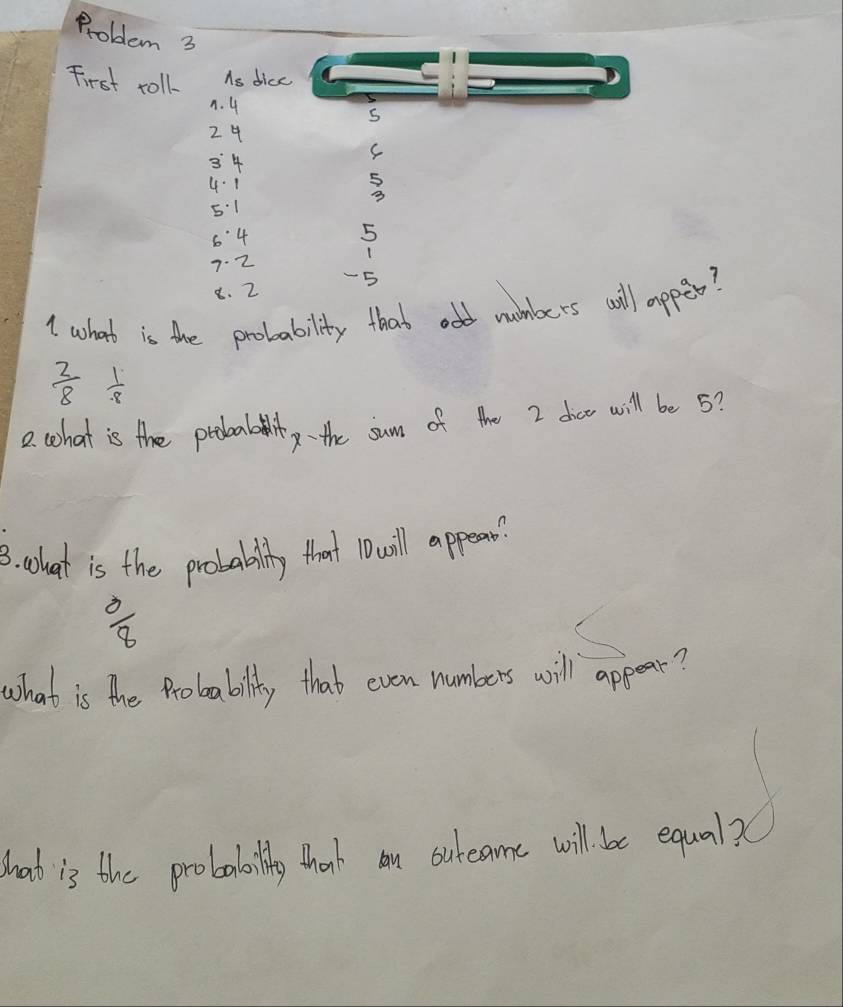 Problem 3
First roll 1s dice
1. 4
5
2 4
3. 4
4. 1 5
5. 1 3
6. 4 5
7. 2 1
8. 2 -5
1 what is the probability that odd numbers will appear?
2/8 1/8
2. what is the probability the sum of the 2 dice will be 5?
3. what is the probability that 10 will appear?
0/8
what is the Probability that even numbers will appear?
what is the probability that an outcame will be equal?